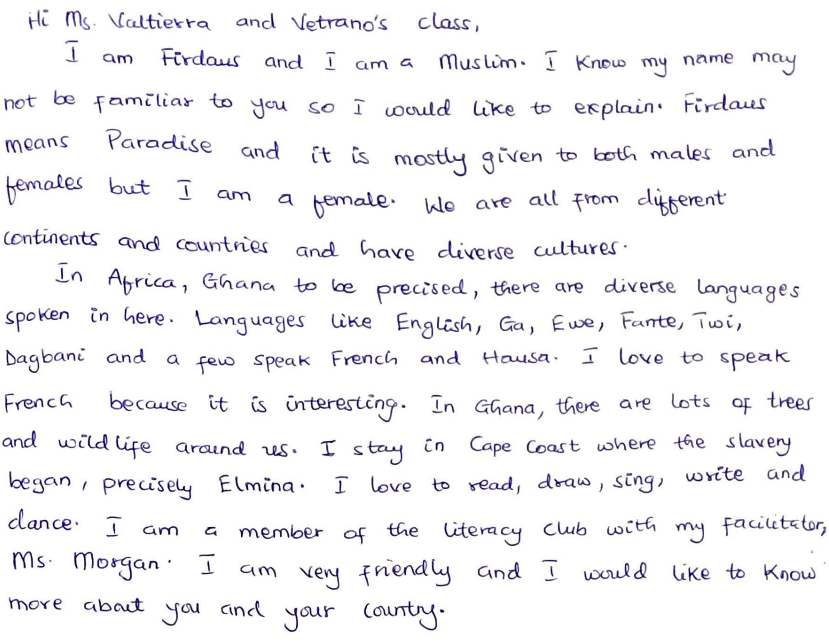 Hi Ms. Valtierra and Vetrano's class,
I am Firdaus and I am a Muslim. I know my name may
not be familiar to you so I would like to explain. Firdaus
means Paradise and it is mostly given to both males and
females but I am a female. We are all from different
continents and countries and have diverse cultures.
In Africa, Ghana to be precised, there are diverse languages
spoken in here. Languages like English, Ga, Ewe, Fante, Twi,
Dagbani and a few speak French and Hausa. I love to speak
French because it is interesting. In Ghana, there are lots of trees
and wildlife around us. I stay in Cape Coast where the slavery
began, precisely Elmina. I love to read, draw, sing, write and
dance. I am a member of the literacy club with my facilitator,
Ms. Morgan. I am very friendly and I would like to know
more about you and your country.